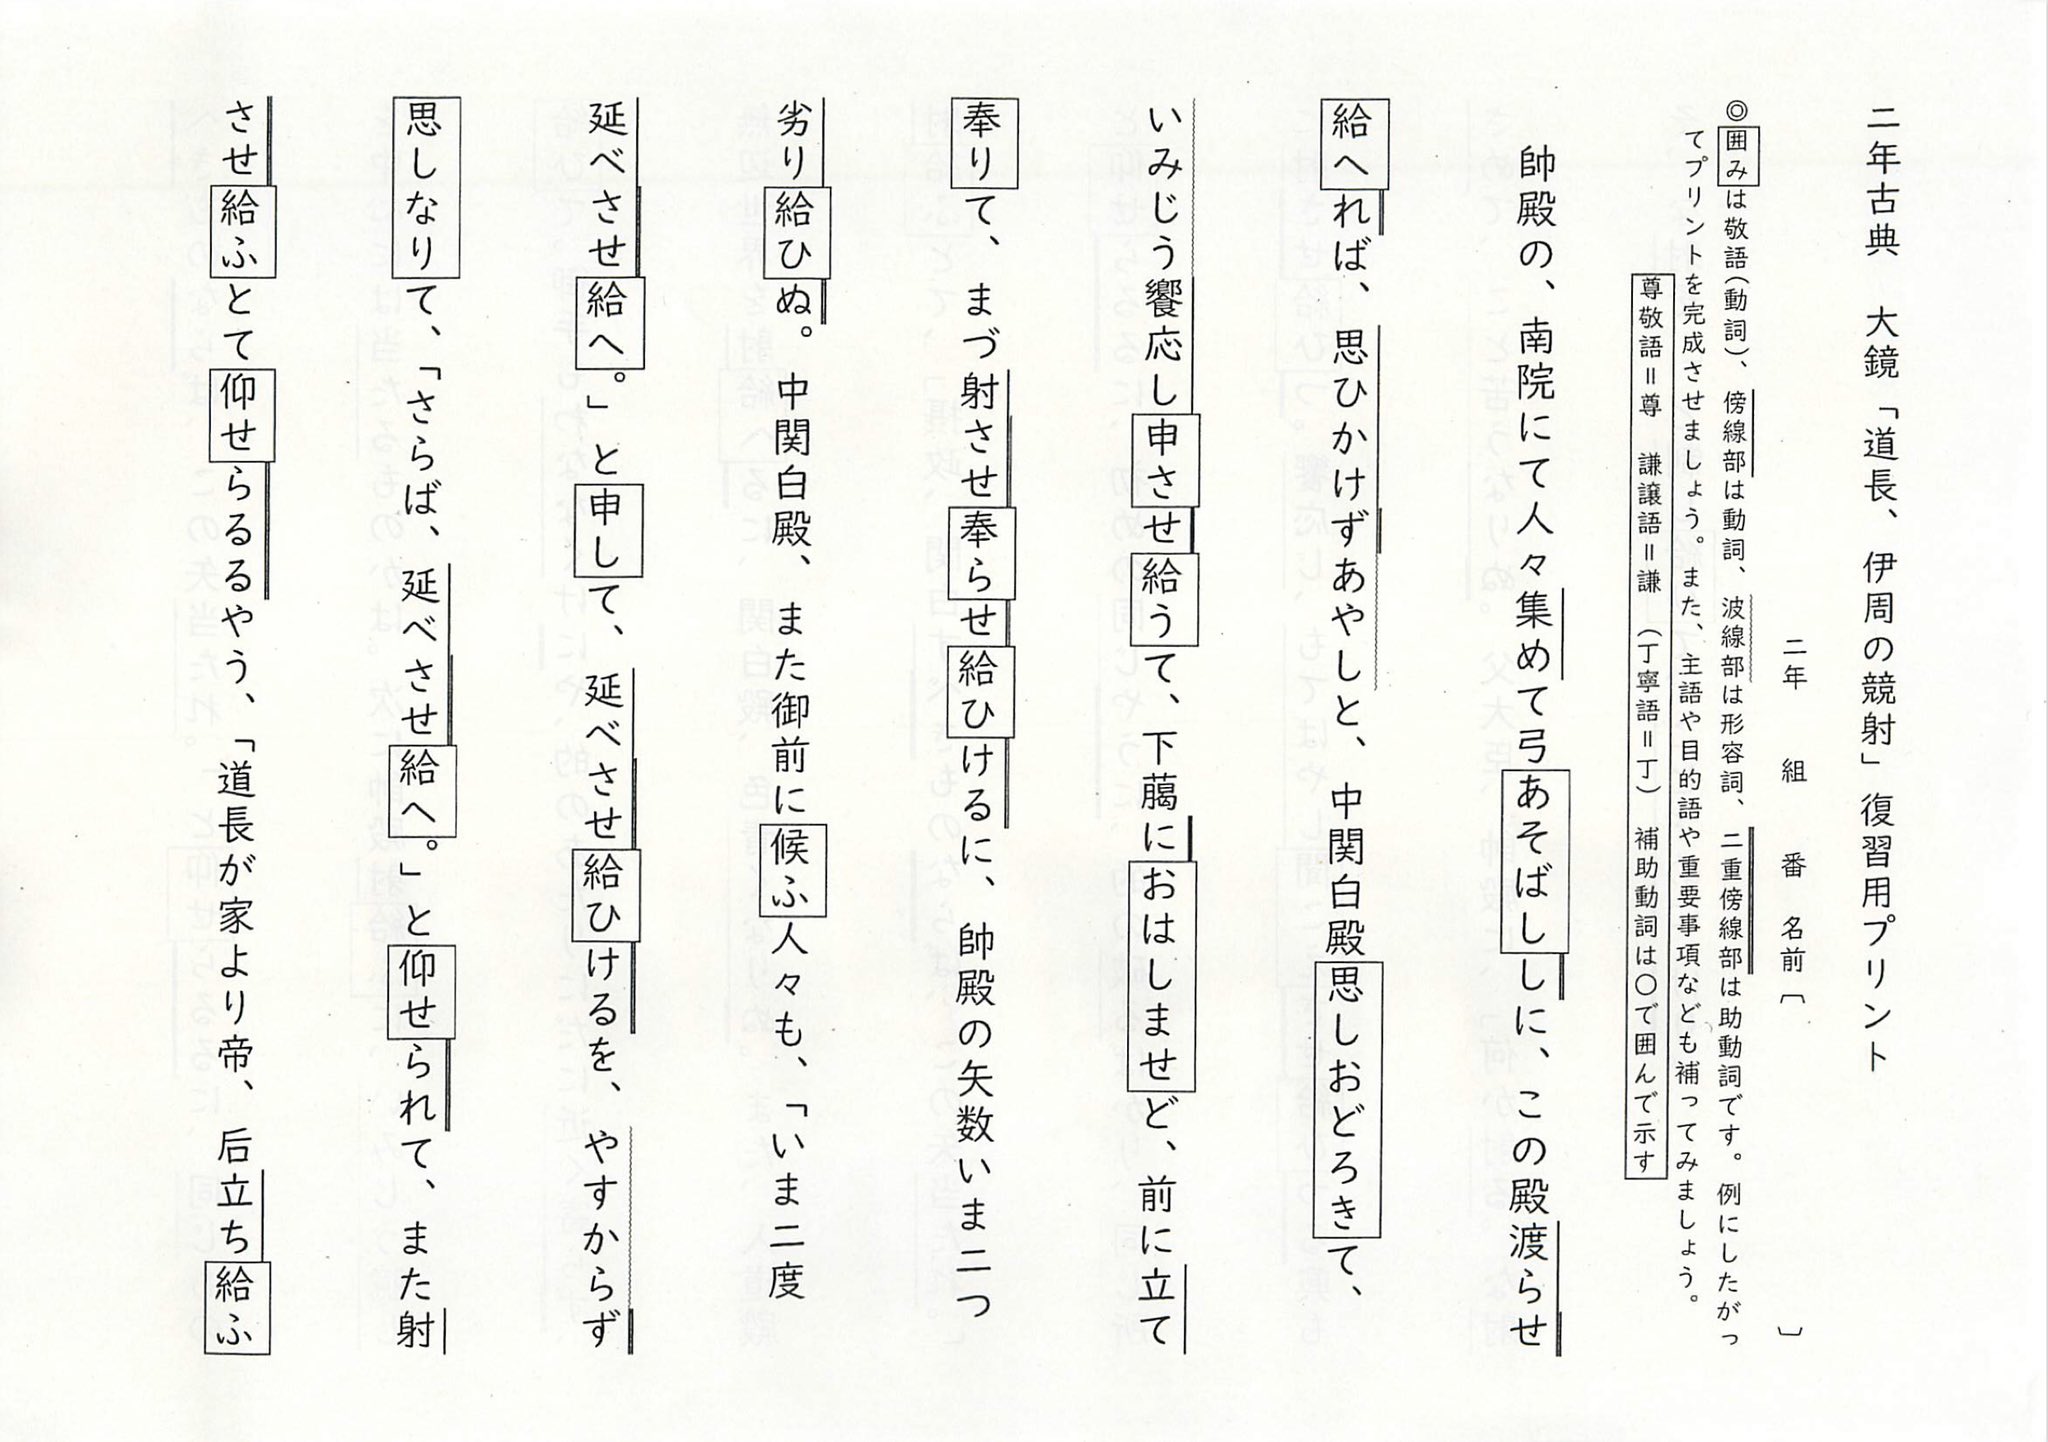 二年古典　大鏡「道長、伊周の競射」復習用プリント
二年　組　番　名前〔　〕
◎囲みは敬語(動詞)、傍線部は動詞、波線部は形容詞、二重傍線部は助動詞です。例にしたがっ
てプリントを完成させましょう。また、主語や目的語や重要事項なども補ってみましょう。
尊敬語＝尊　謙譲語＝謙　(丁寧語＝丁)　補助動詞は〇で囲んで示す
帥殿の、南院にて人々集めて弓あそばししに、この殿渡らせ
給へれば、思ひかけずあやしと、中関白殿思しおどろきて、
いみじう饗応し申させ給うて、下﨟におはしませど、前に立て
奉りて、まづ射させ奉らせ給ひけるに、帥殿の矢数いま二つ
劣り給ひぬ。中関白殿、また御前に候ふ人々も、「いま二度
延べさせ給へ。」と申して、延べさせ給ひけるを、やすからず
思しなりて、「さらば、延べさせ給へ。」と仰せられて、また射
させ給ふとて仰せらるるやう、「道長が家より帝、后立ち給ふ